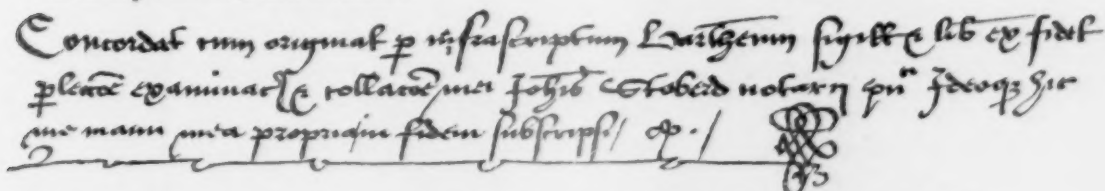 Concordat cum original p infrascriptum sigill & lib ex fidel
p lectoē examinat & collacoē mei Johis Stoberd notarii Ideoqz hic
me manu mea propria in fidem subscripsi